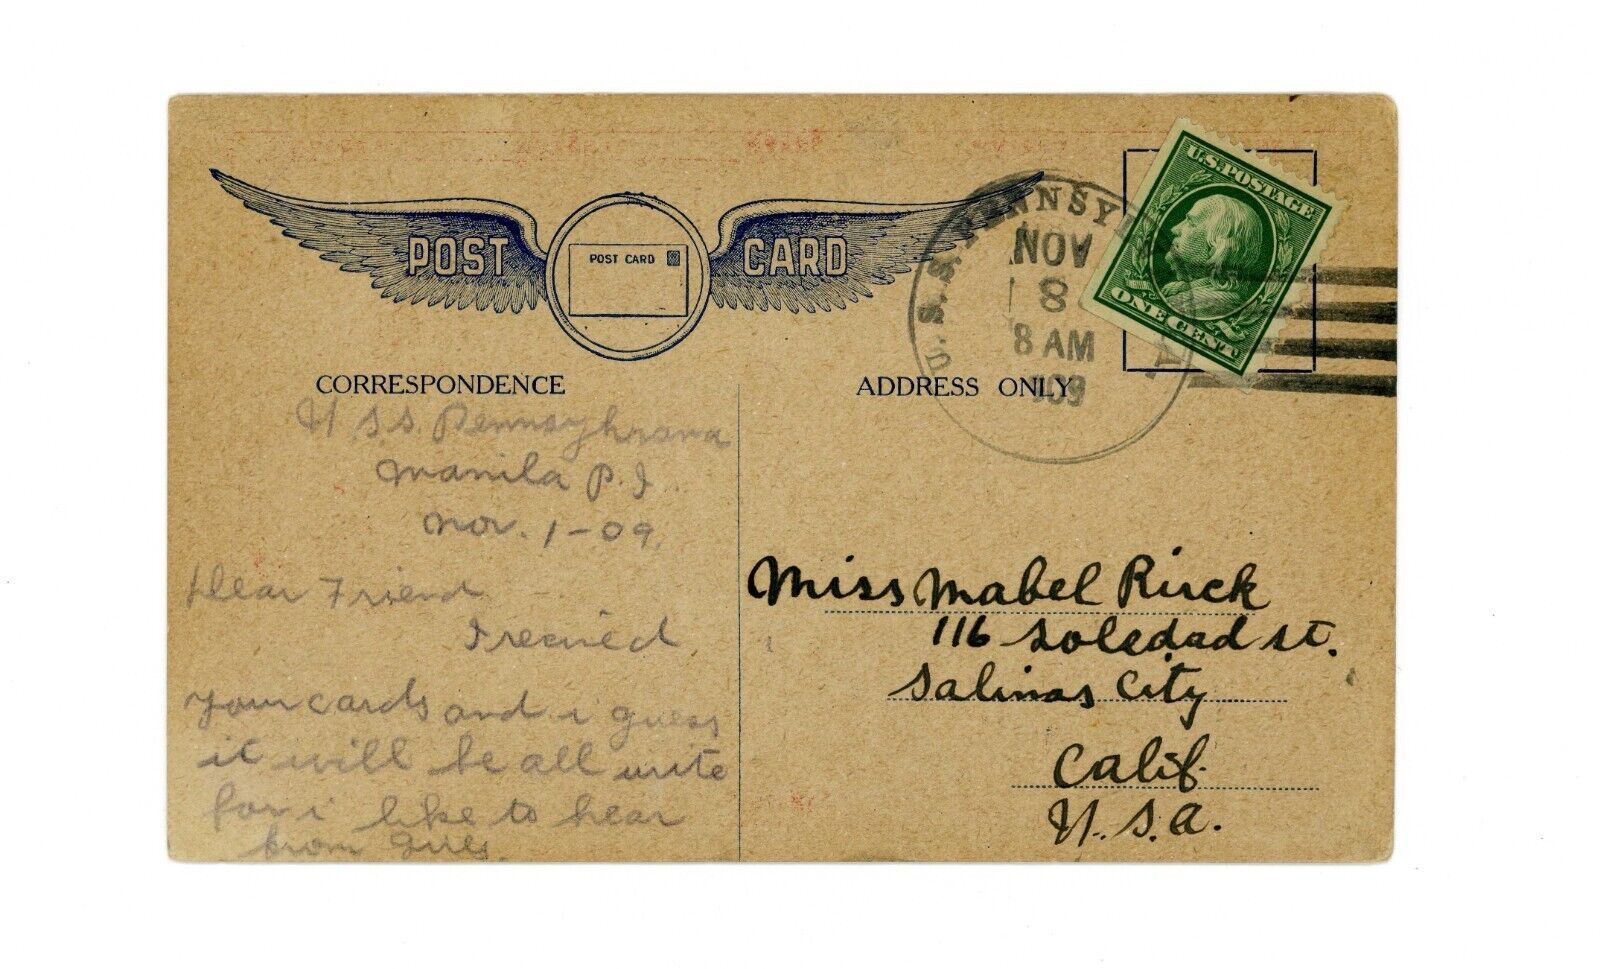 POST CARD
POST CARD
CORRESPONDENCE
ADDRESS ONLY
U.S.S. PENNSYLVANIA
NOV
8
8 AM
'09
U.S. POSTAGE
ONE CENT
U.S.S. Pennsylvania
Manila P.I.
Nov. 1-09.
Dear Friend
I recieved
your cards and i guess
it will be all write
for i like to hear
from Girls.
Miss Mabel Rirck
116 Soledad st.
Salinas City
Calif.
U.S.A.